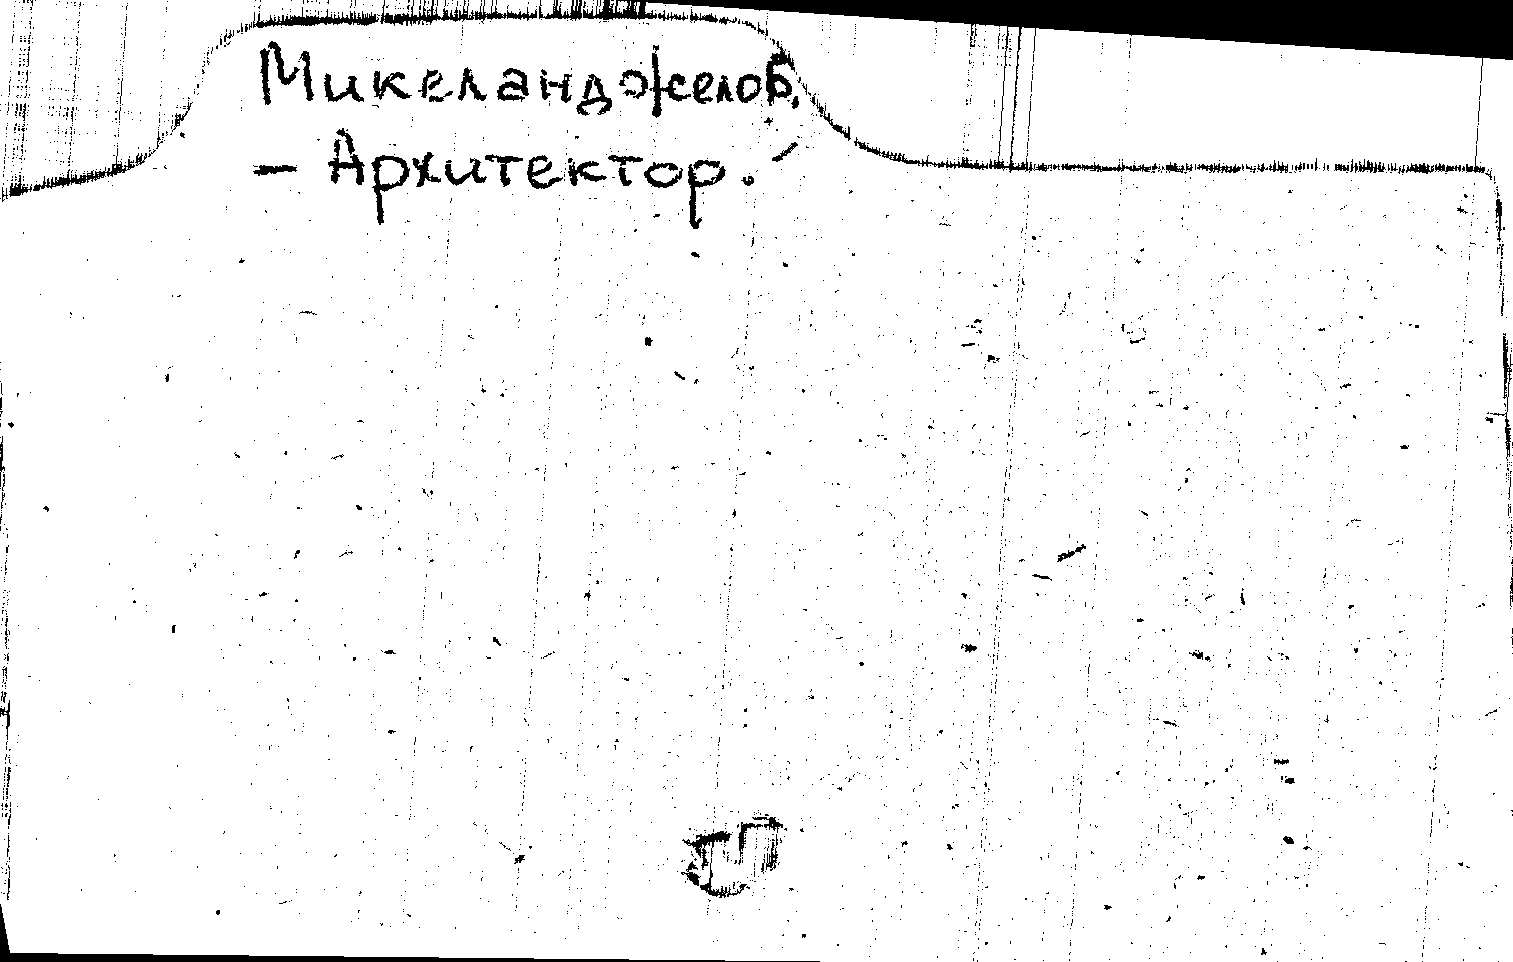 Микеланджелоб.
– Архитектор.